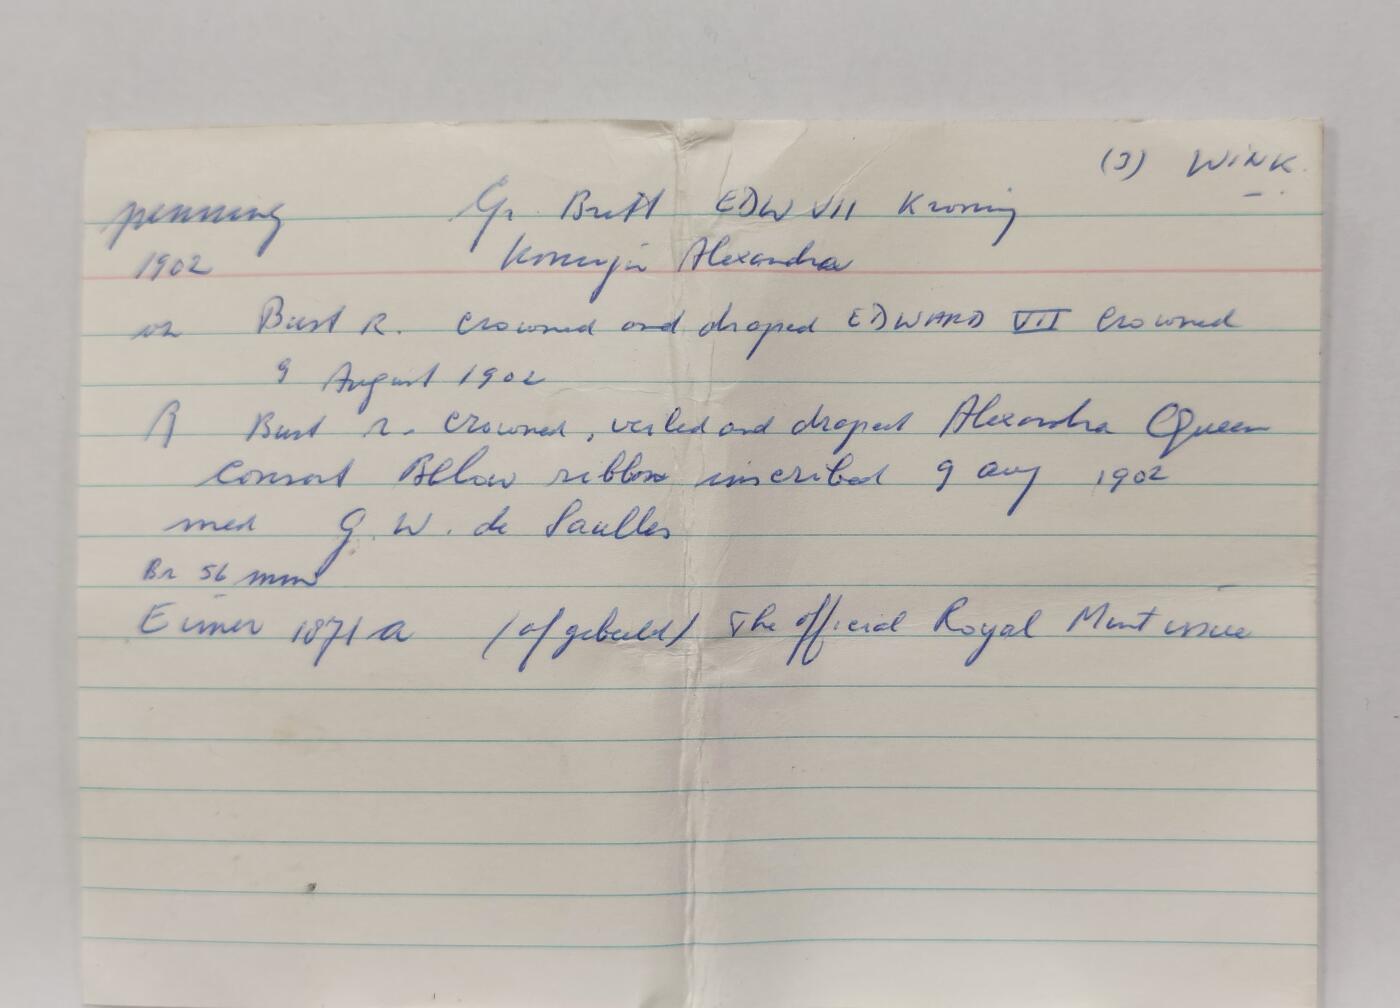 (J) WINK.
penning Gr. Britt EDW VII Kroning
1902 Koningin Alexandra
vz Bust R. crowned and draped EDWARD VII Crowned
9 August 1902
R Bust r. crowned, veiled and draped Alexandra Queen
Consort Below ribbon inscribed 9 aug 1902
med G. W. de Saulles
Br 56 mm
Eimer 1871 a (afgebeeld) The official Royal Mint issue